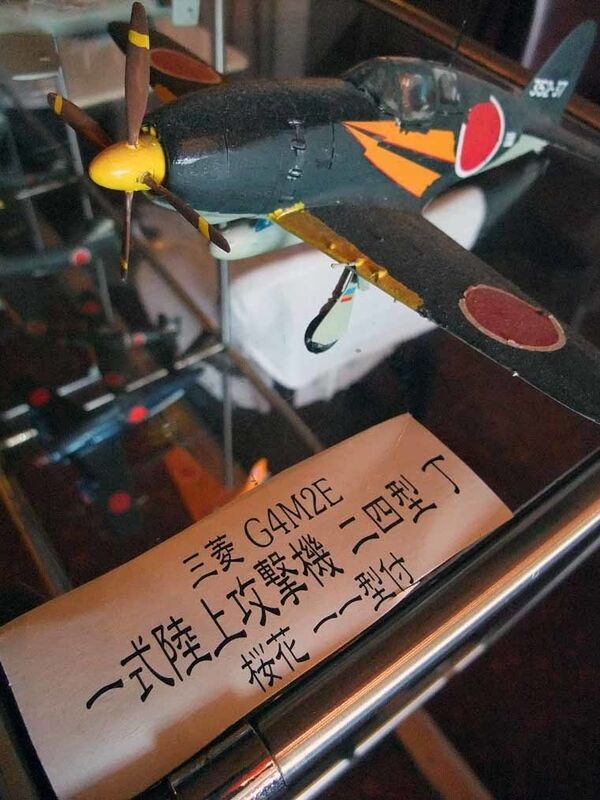 352-37
三菱 G4M2E
一式陸上攻撃機 二四型 丁
桜花 一一型付